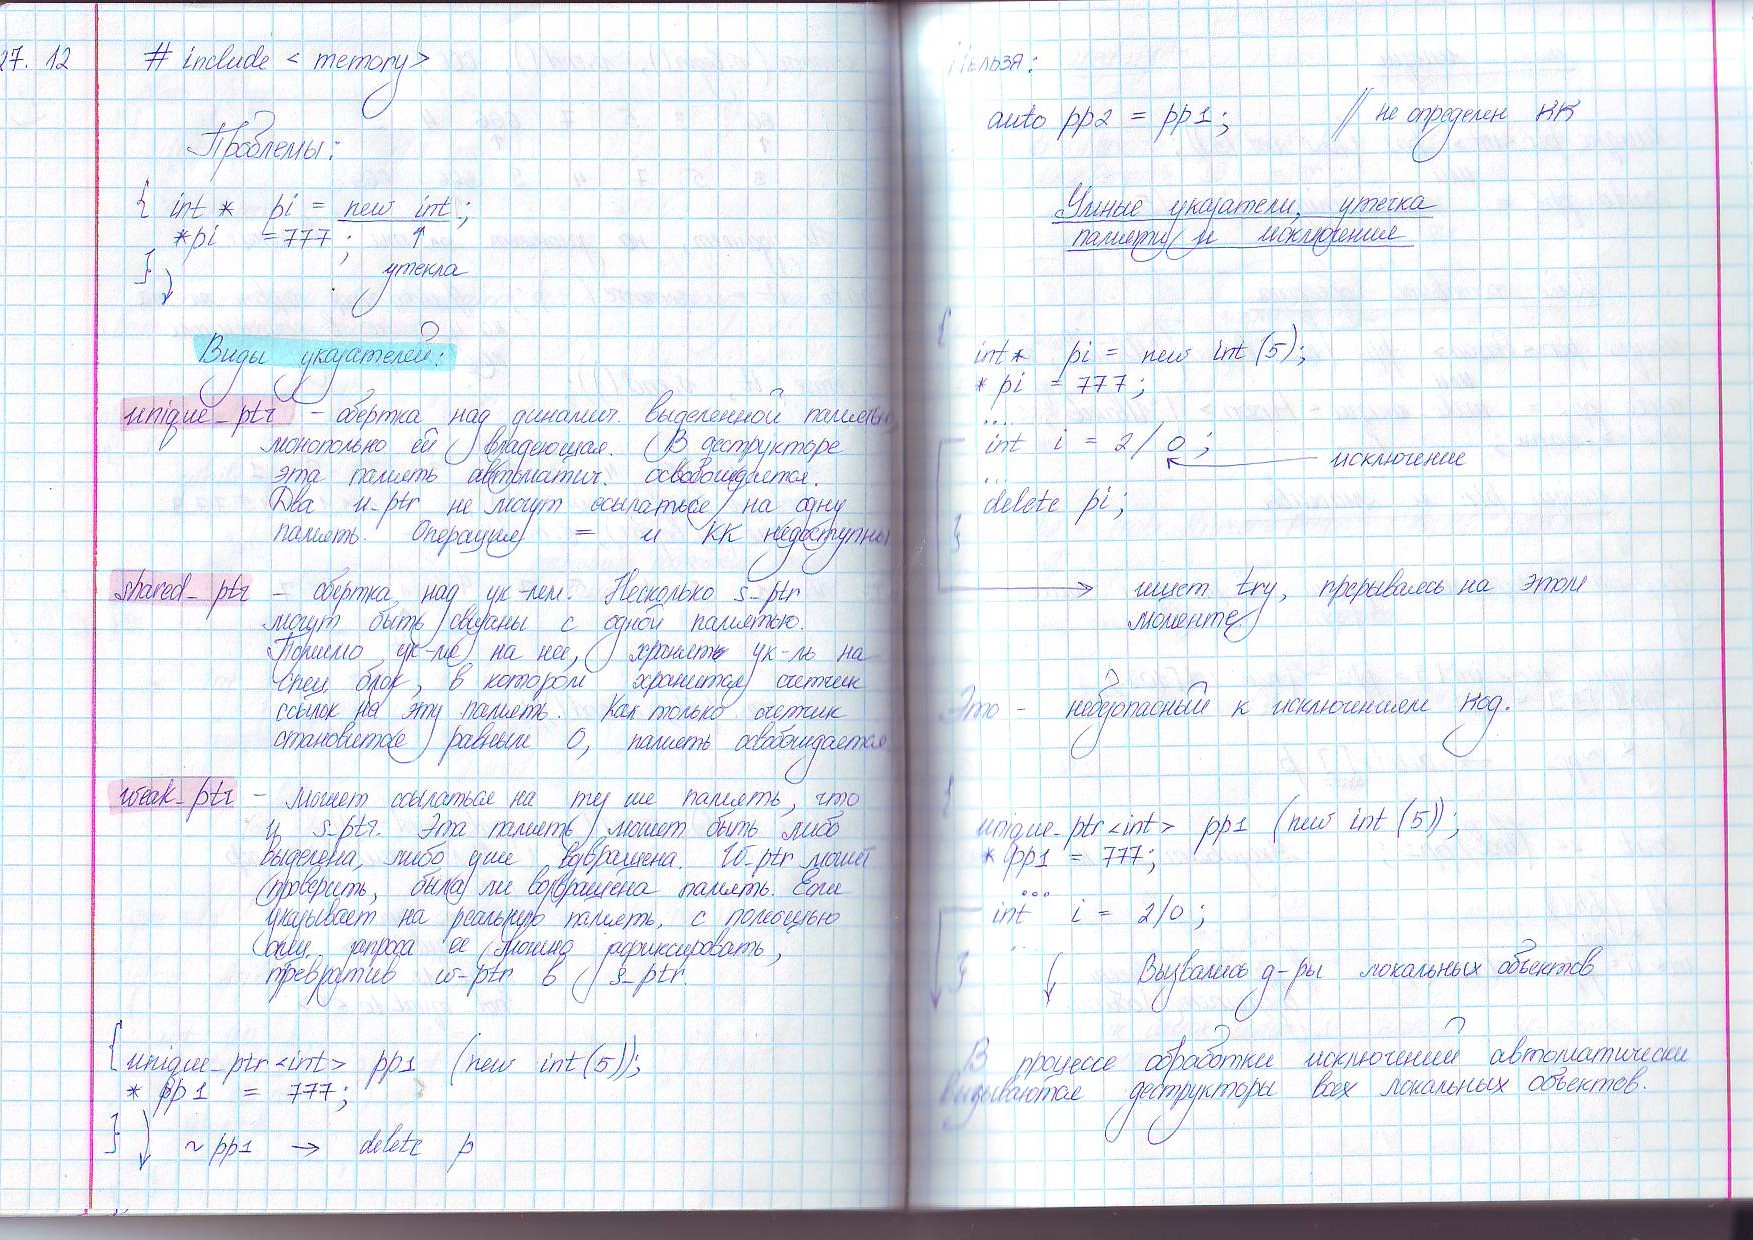 27. 12
# include < memory>
Проблемы:
{ int * pi = new int;
*pi = 777; ↑
} утекла
Виды указателей:
unique_ptr - обертка над динамич. выделенной памятью,
монопольно ей владеющая. В деструкторе
эта память автоматич. освобождается.
Два u-ptr не могут ссылаться на одну
память. Операция = и КК недоступны
shared_ptr - обертка над ук-лем. Несколько s-ptr
могут быть связаны с одной памятью.
Помимо ук-ля на нее, хранять ук-ль на
спец. блок, в котором хранится счетчик
ссылок на эту память. Как только счетчик
становится равным 0, память освобождается
weak_ptr - может ссылаться на ту же память, что
и s-ptr. Эта память может быть либо
выделена, либо уже возвращена. W-ptr может
проверить, была ли возвращена память. Если
указывает на реальную память, с помощью
спец. запроса ее можно зафиксировать,
превратив w-ptr в s-ptr.
{ unique_ptr<int> pp1 (new int(5));
* pp1 = 777;
} ~pp1 → delete p
Нельзя:
auto pp2 = pp1; // не определен КК
Умные указатели, утечка
памяти и исключения
{
int* pi = new int(5);
* pi = 777;
....
int i = 2/0; исключение
...
delete pi;
}
→ ищет try, прерываясь на этом
моменте
Это - небезопасный к исключениям код.
{
unique_ptr<int> pp1 (new int(5));
* pp1 = 777;
...
int i = 2/0;
...
} Вызвались д-ры локальных объектов
В процессе обработки исключений автоматически
вызываются деструкторы всех локальных объектов.